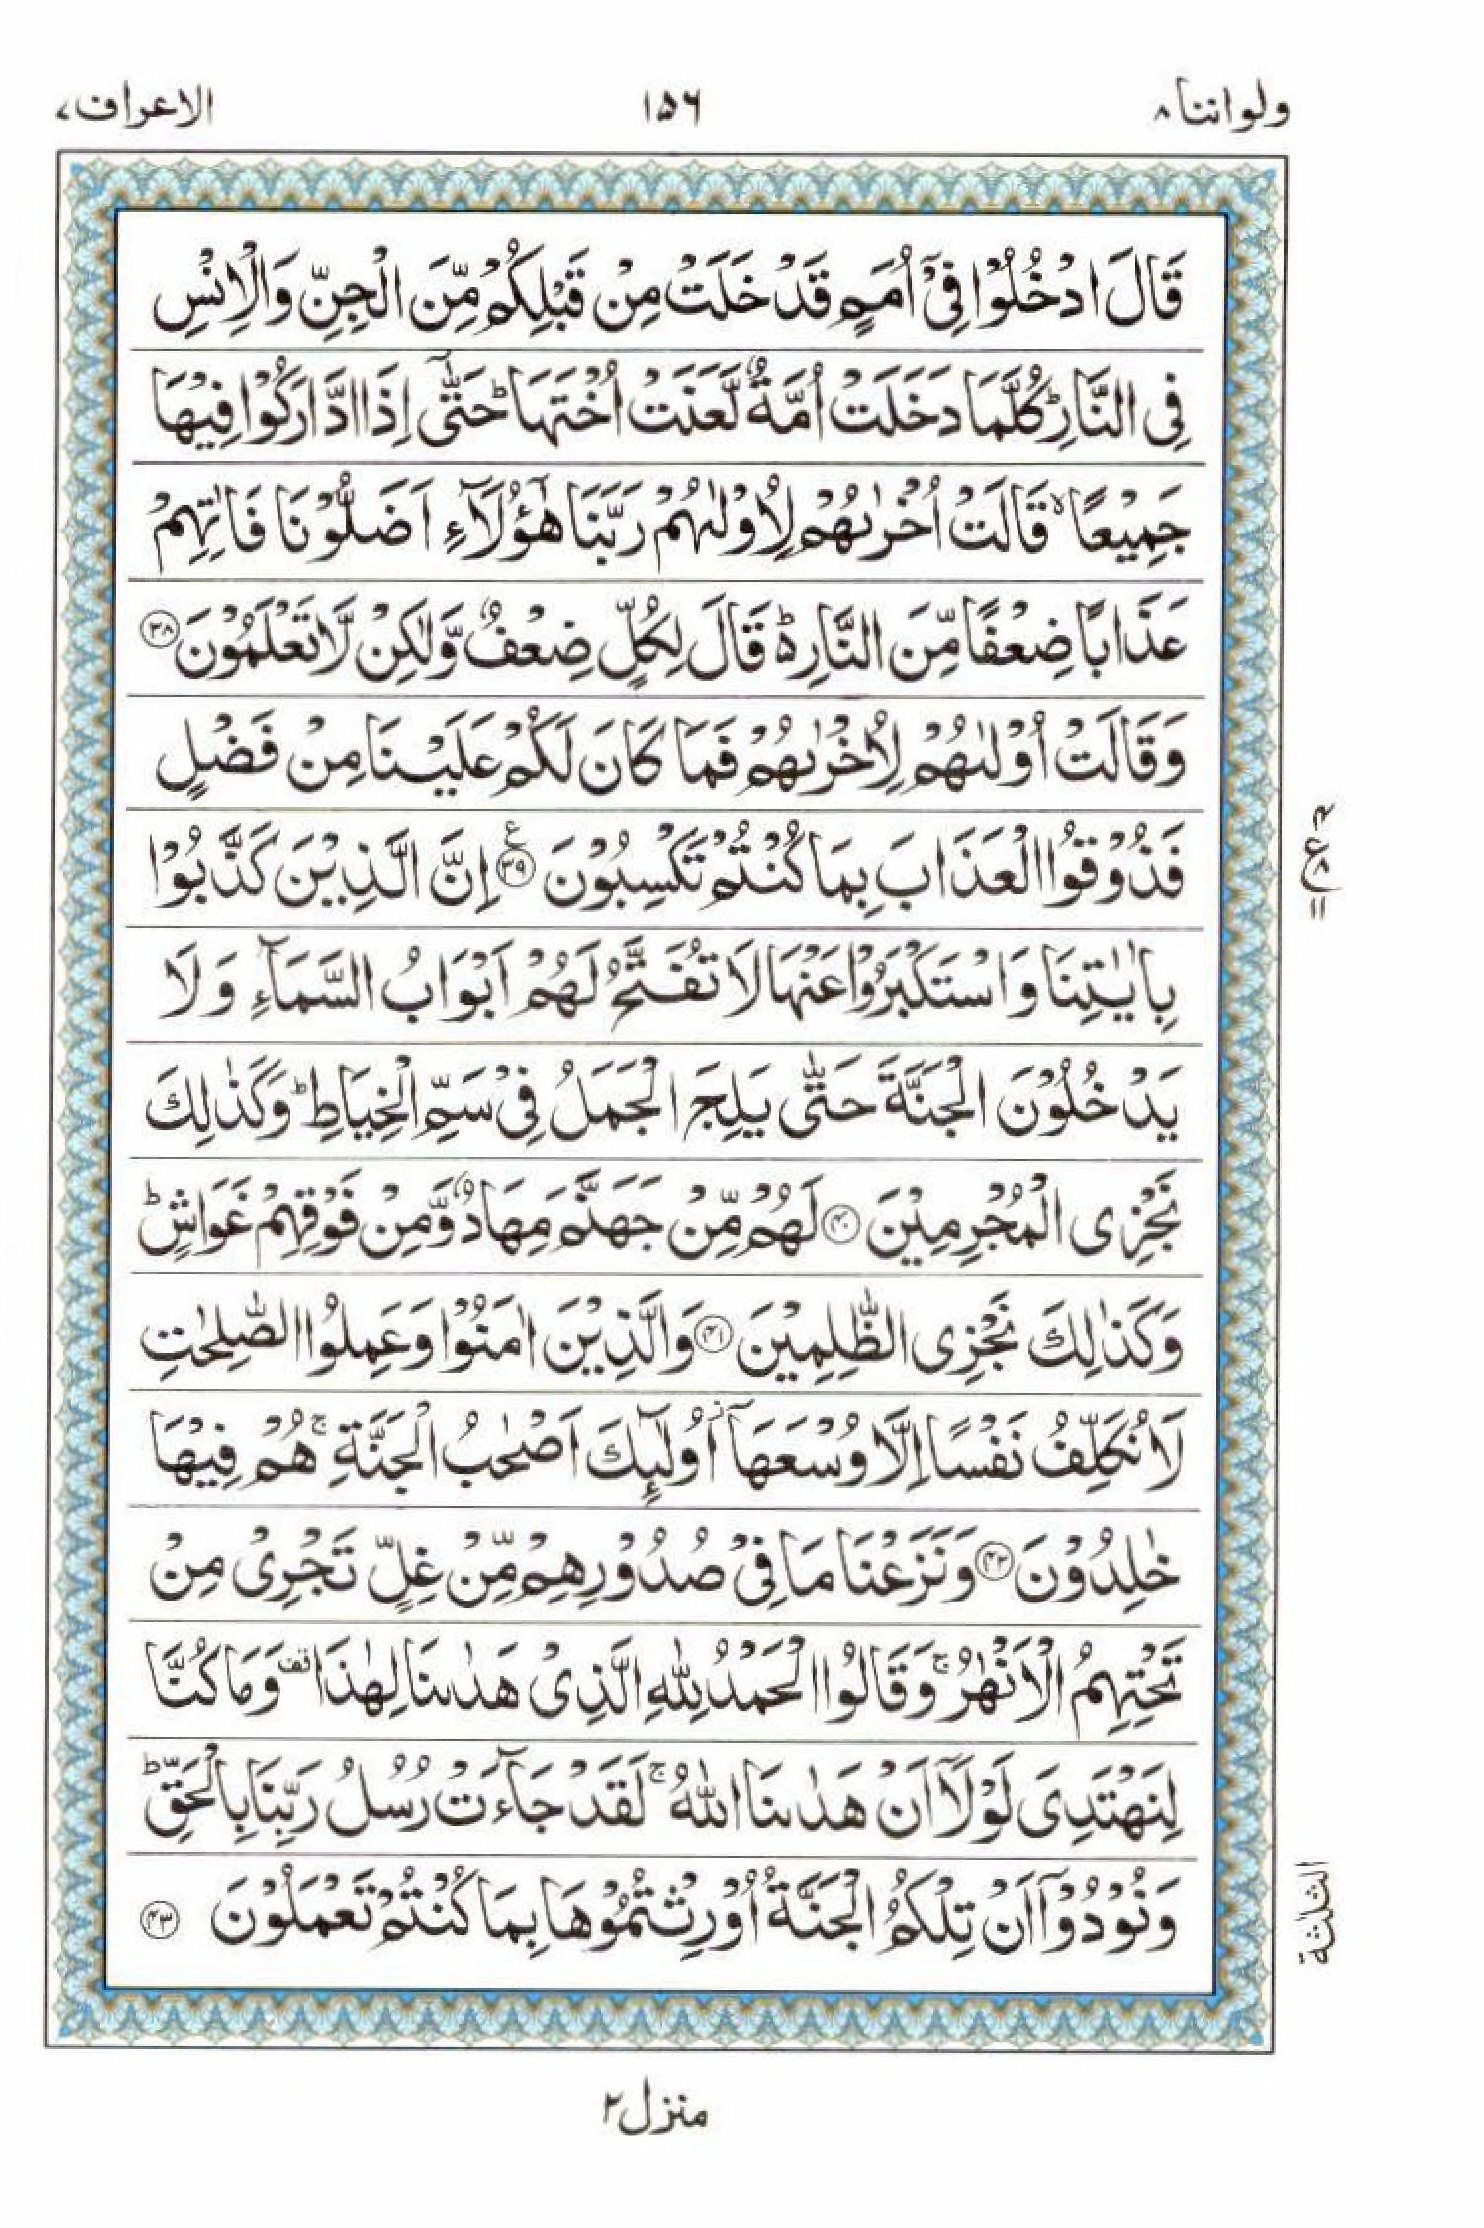 ولواننا ٨
١٥٦
الاعراف ٧
قَالَ ادْخُلُوْا فِیْۤ اُمَمٍ قَدْ خَلَتْ مِنْ قَبْلِكُمْ مِّنَ الْجِنِّ وَالْاِنْسِ
فِی النَّارِؕ كُلَّمَا دَخَلَتْ اُمَّةٌ لَّعَنَتْ اُخْتَهَاؕ حَتّٰۤی اِذَا ادَّارَكُوْا فِیْهَا
جَمِیْعًاۙ قَالَتْ اُخْرٰىهُمْ لِاُوْلٰىهُمْ رَبَّنَا هٰۤؤُلَآءِ اَضَلُّوْنَا فَاٰتِهِمْ
عَذَابًا ضِعْفًا مِّنَ النَّارِ۬ؕ قَالَ لِكُلٍّ ضِعْفٌ وَّلٰكِنْ لَّا تَعْلَمُوْنَ ۝٣٨
وَقَالَتْ اُوْلٰىهُمْ لِاُخْرٰىهُمْ فَمَا كَانَ لَكُمْ عَلَیْنَا مِنْ فَضْلٍ
فَذُوْقُوا الْعَذَابَ بِمَا كُنْتُمْ تَكْسِبُوْنَ ۝٣٩ع اِنَّ الَّذِیْنَ كَذَّبُوْا
بِاٰیٰتِنَا وَاسْتَكْبَرُوْا عَنْهَا لَا تُفَتَّحُ لَهُمْ اَبْوَابُ السَّمَآءِ وَلَا
یَدْخُلُوْنَ الْجَنَّةَ حَتّٰی یَلِجَ الْجَمَلُ فِیْ سَمِّ الْخِیَاطِؕ وَكَذٰلِكَ
نَجْزِی الْمُجْرِمِیْنَ ۝٤٠ لَهُمْ مِّنْ جَهَنَّمَ مِهَادٌ وَّمِنْ فَوْقِهِمْ غَوَاشٍؕ
وَكَذٰلِكَ نَجْزِی الظّٰلِمِیْنَ ۝٤١ وَالَّذِیْنَ اٰمَنُوْا وَعَمِلُوا الصّٰلِحٰتِ
لَا نُكَلِّفُ نَفْسًا اِلَّا وُسْعَهَاۤ ز اُولٰٓىِٕكَ اَصْحٰبُ الْجَنَّةِۚ هُمْ فِیْهَا
خٰلِدُوْنَ ۝٤٢ وَنَزَعْنَا مَا فِیْ صُدُوْرِهِمْ مِّنْ غِلٍّ تَجْرِیْ مِنْ
تَحْتِهِمُ الْاَنْهٰرُۚ وَقَالُوا الْحَمْدُ لِلّٰهِ الَّذِیْ هَدٰىنَا لِهٰذَا قف وَمَا كُنَّا
لِنَهْتَدِیَ لَوْلَاۤ اَنْ هَدٰىنَا اللّٰهُۚ لَقَدْ جَآءَتْ رُسُلُ رَبِّنَا بِالْحَقِّؕ
وَنُوْدُوْۤا اَنْ تِلْكُمُ الْجَنَّةُ اُوْرِثْتُمُوْهَا بِمَا كُنْتُمْ تَعْمَلُوْنَ ۝٤٣
الثلٰثة
منزل ٢